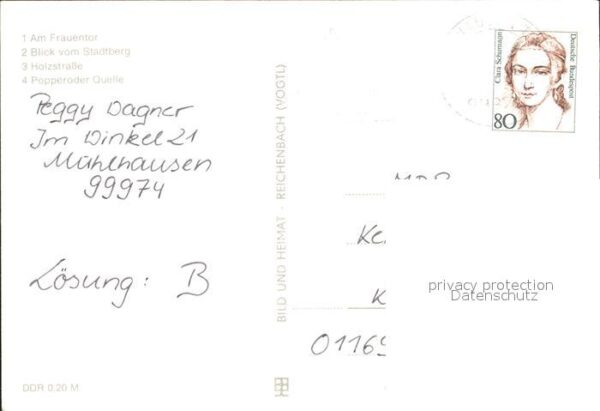 1 Am Frauentor
2 Blick vom Stadtberg
3 Holzstraße
4 Popperoder Quelle
Peggy Dagner
Im Winkel 21
Mühlhausen
99974
Lösung: B
DDR 0,20 M
BILD UND HEIMAT · REICHENBACH (VOGTL)
Clara Schumann
Deutsche Bundespost
80
MDR
K
0116
privacy protection
Datenschutz